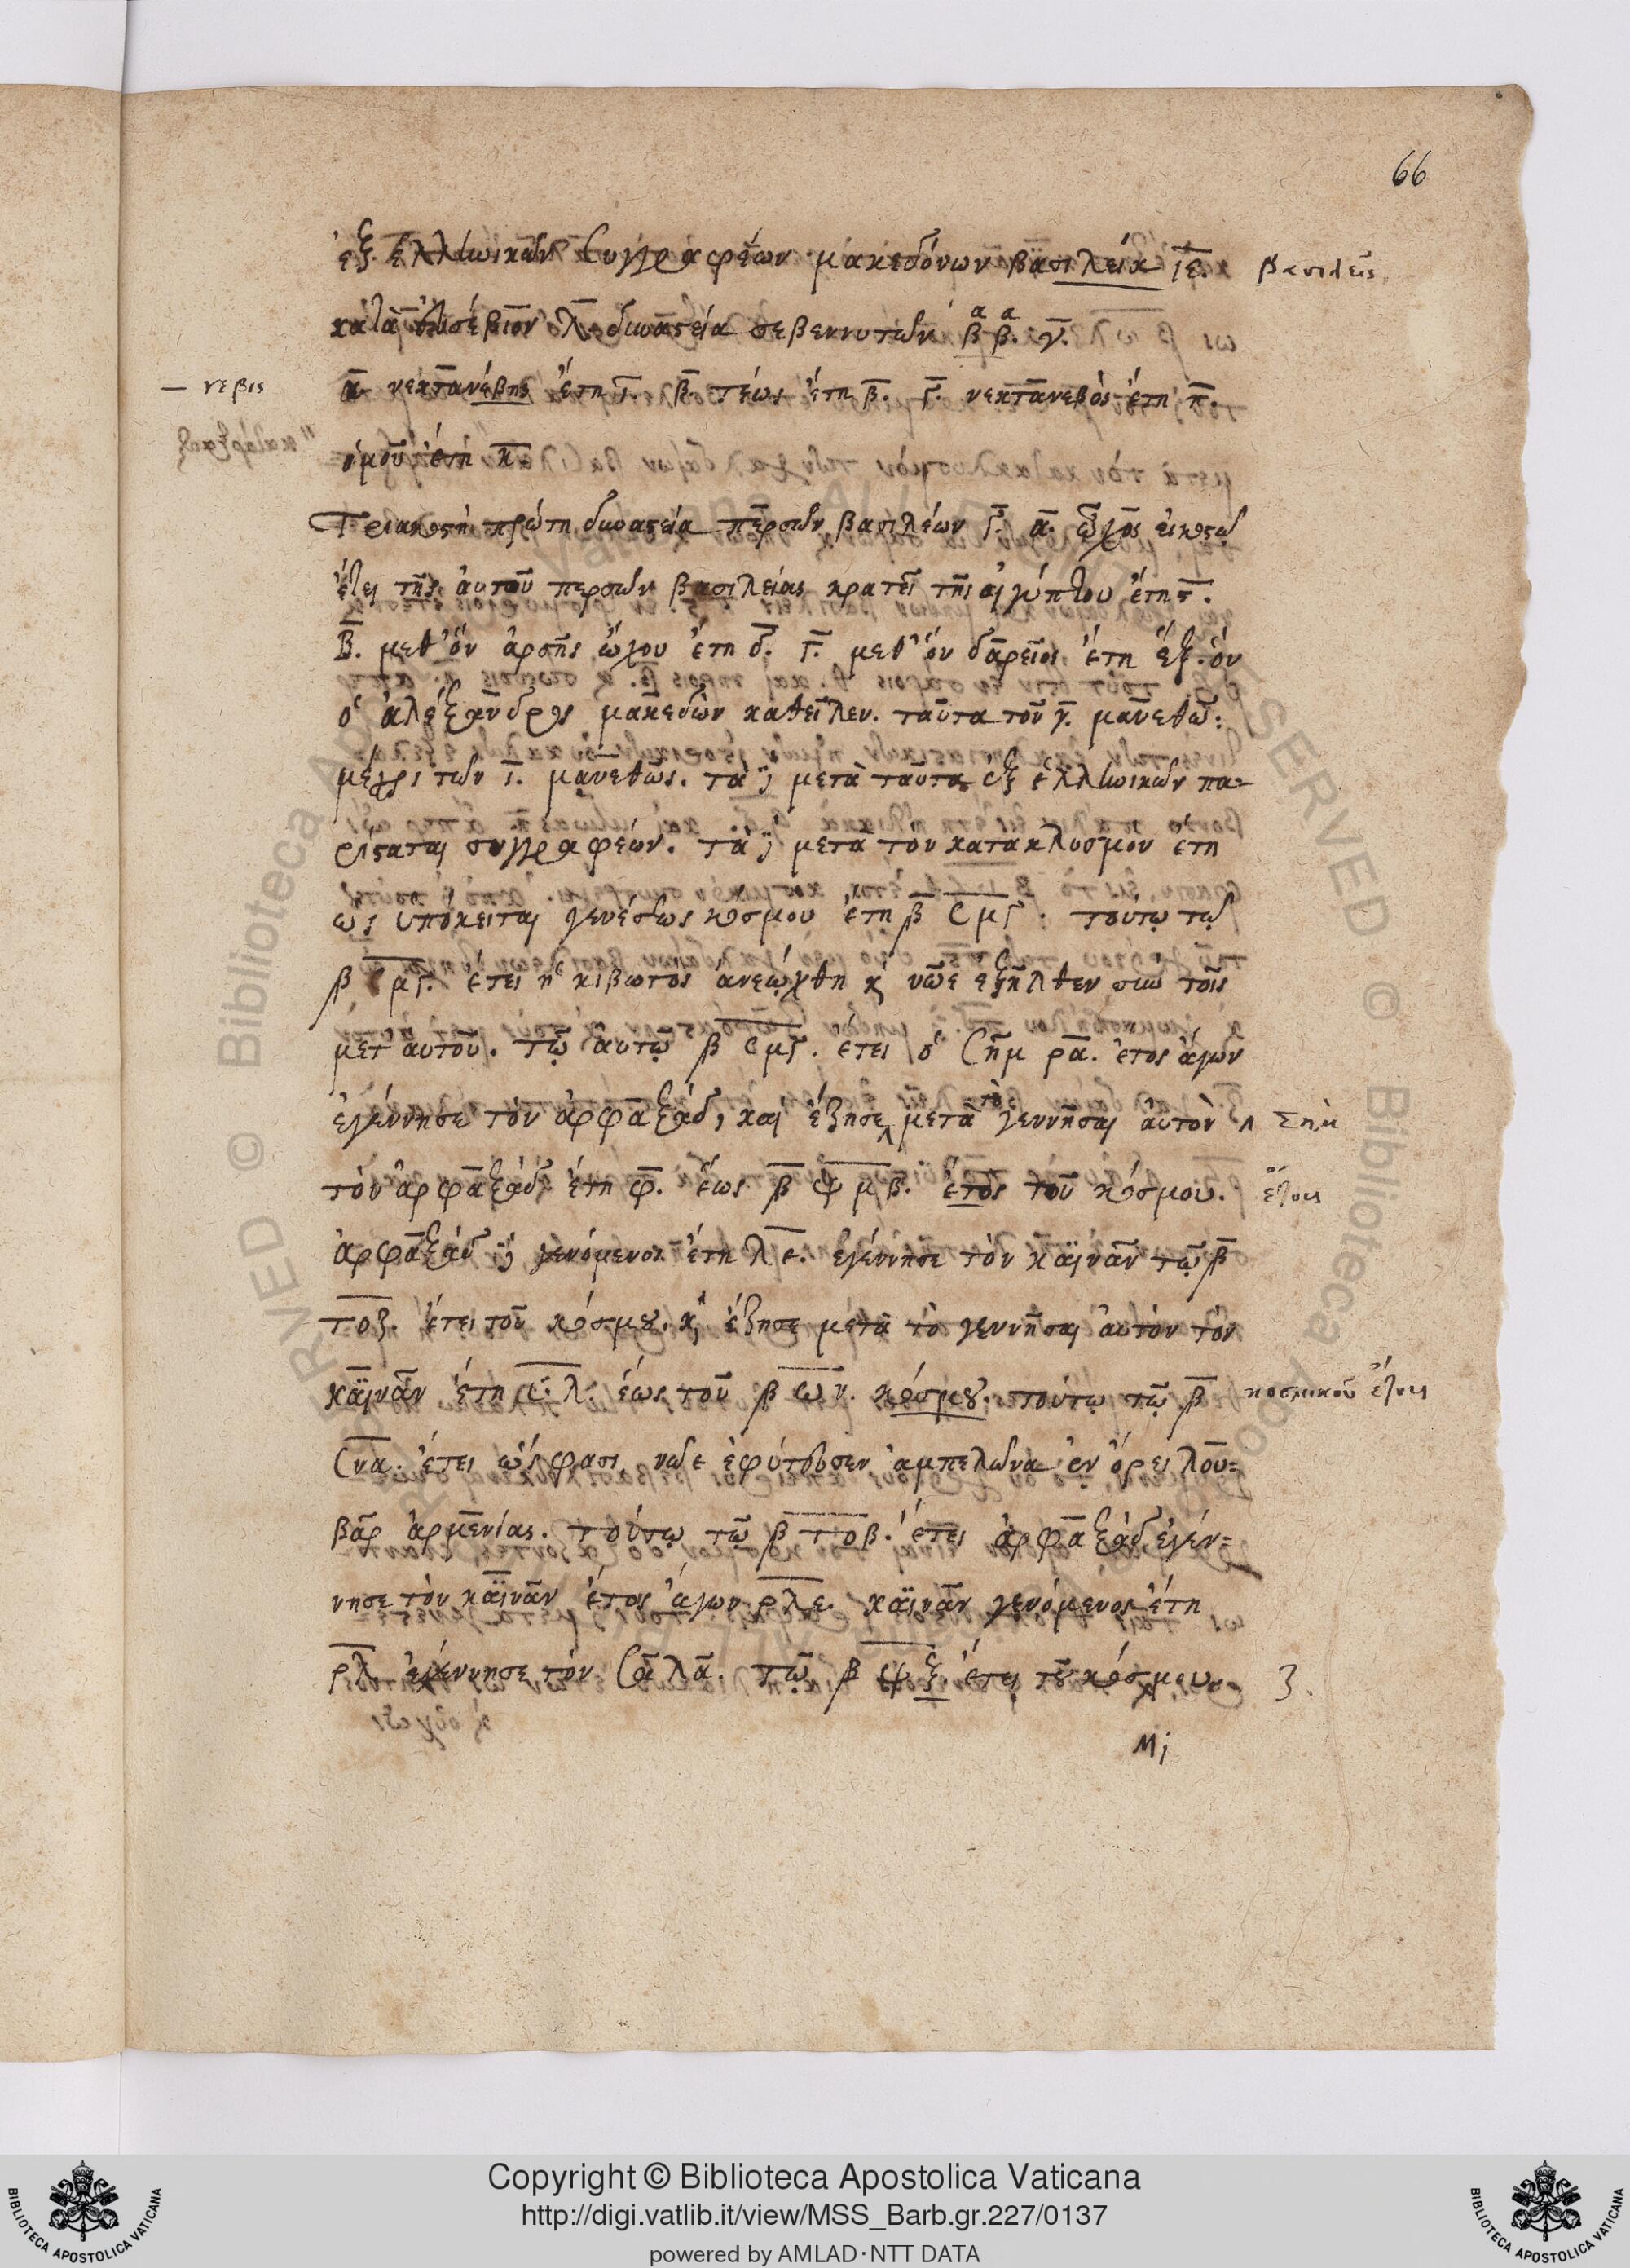 66
ἐξ ἑλληνικῶν συγγραφέων μακεδόνων βασιλεία ιε. βασιλεῖς
κατὰ εὐσέβιον λ. δυναστεία σεβεννυτῶν β β. γ.
α α
— νεβις α νεκτανέβης ἔτη ι. β. τέως ἔτη β. γ. νεκτανεβὸς ἔτη η.
ὁμοῦ ἔτη κ
Τριακοστὴ πρώτη δυναστεία περσῶν βασιλέων γ. α. ὦχος εἰκοστῷ
ἔτει τῆς αὐτοῦ περσῶν βασιλείας κρατεῖ τῆς αἰγύπτου ἔτη ς.
β. μεθ' ὃν ἀρσῆς ὤχου ἔτη δ. γ. μεθ' ὃν δαρεῖος ἔτη ἕξ. ὃν
ὁ ἀλέξανδρος μακεδὼν καθεῖλεν. ταῦτα τοῦ γ. μανεθῶ:
μέχρι τῶν μανεθῶς. τὰ δὲ μετὰ ταῦτα ἐξ ἑλληνικῶν πα-
ρίσταται συγγραφέων. τὰ δὲ μετὰ τὸν κατακλυσμὸν ἔτη
ὡς ὑπόκειται γενέσεως κόσμου ἔτη β ς μ γ. τούτῳ τῷ
β ς μ γ. ἔτει ἡ κιβωτὸς ἀνεῴχθη κ νῶε ἐξῆλθεν σὺν τοῖς
μετ αυτοῦ. τῷ αὐτῷ β ς μ γ. ἔτει ὁ σὴμ ρα. ἔτος ἄγων
ἐγέννησε τὸν ἀρφαξάδ, καὶ ἔζησε μετὰ τὸ γεννῆσαι αὐτὸν Σὴμ
τὸν ἀρφαξάδ ἔτη φ. ἕως β ψ μ β. ἔτος τοῦ κόσμου. ἔτους
ἀρφαξάδ δὲ γενόμενος ἔτη λ ε. ἐγέννησε τὸν καϊνᾶν τῷ β
τοζ. ἔτει τοῦ κόσμου. κ ἔζησε μετὰ τὸ γεννῆσαι αὐτὸν τὸν
καϊνᾶν ἔτη υ λ. ἕως τοῦ β ω ν. κόσμου. τούτῳ τῷ β κοσμικοῦ ἔτους
ςνα. ἔτει ὥς φασι νῶε ἐφύτευσεν ἀμπελῶνα ἐν ὄρει λου-
βὰρ ἀρμενίας. τούτῳ τῷ β τοβ. ἔτει ἀρφαξὰδ ἐγέν-
νησε τὸν καϊνᾶν ἔτος ἄγων ρλε. καϊνᾶν γενόμενος ἔτη
ρλ ἐγέννησε τὸν σαλα. τῷ β φ ξ ἔτει τοῦ κόσμου. ζ.
Copyright © Biblioteca Apostolica Vaticana
http://digi.vatlib.it/view/MSS_Barb.gr.227/0137
powered by AMLAD·NTT DATA
BIBLIOTECA APOSTOLICA VATICANA
BIBLIOTECA APOSTOLICA VATICANA